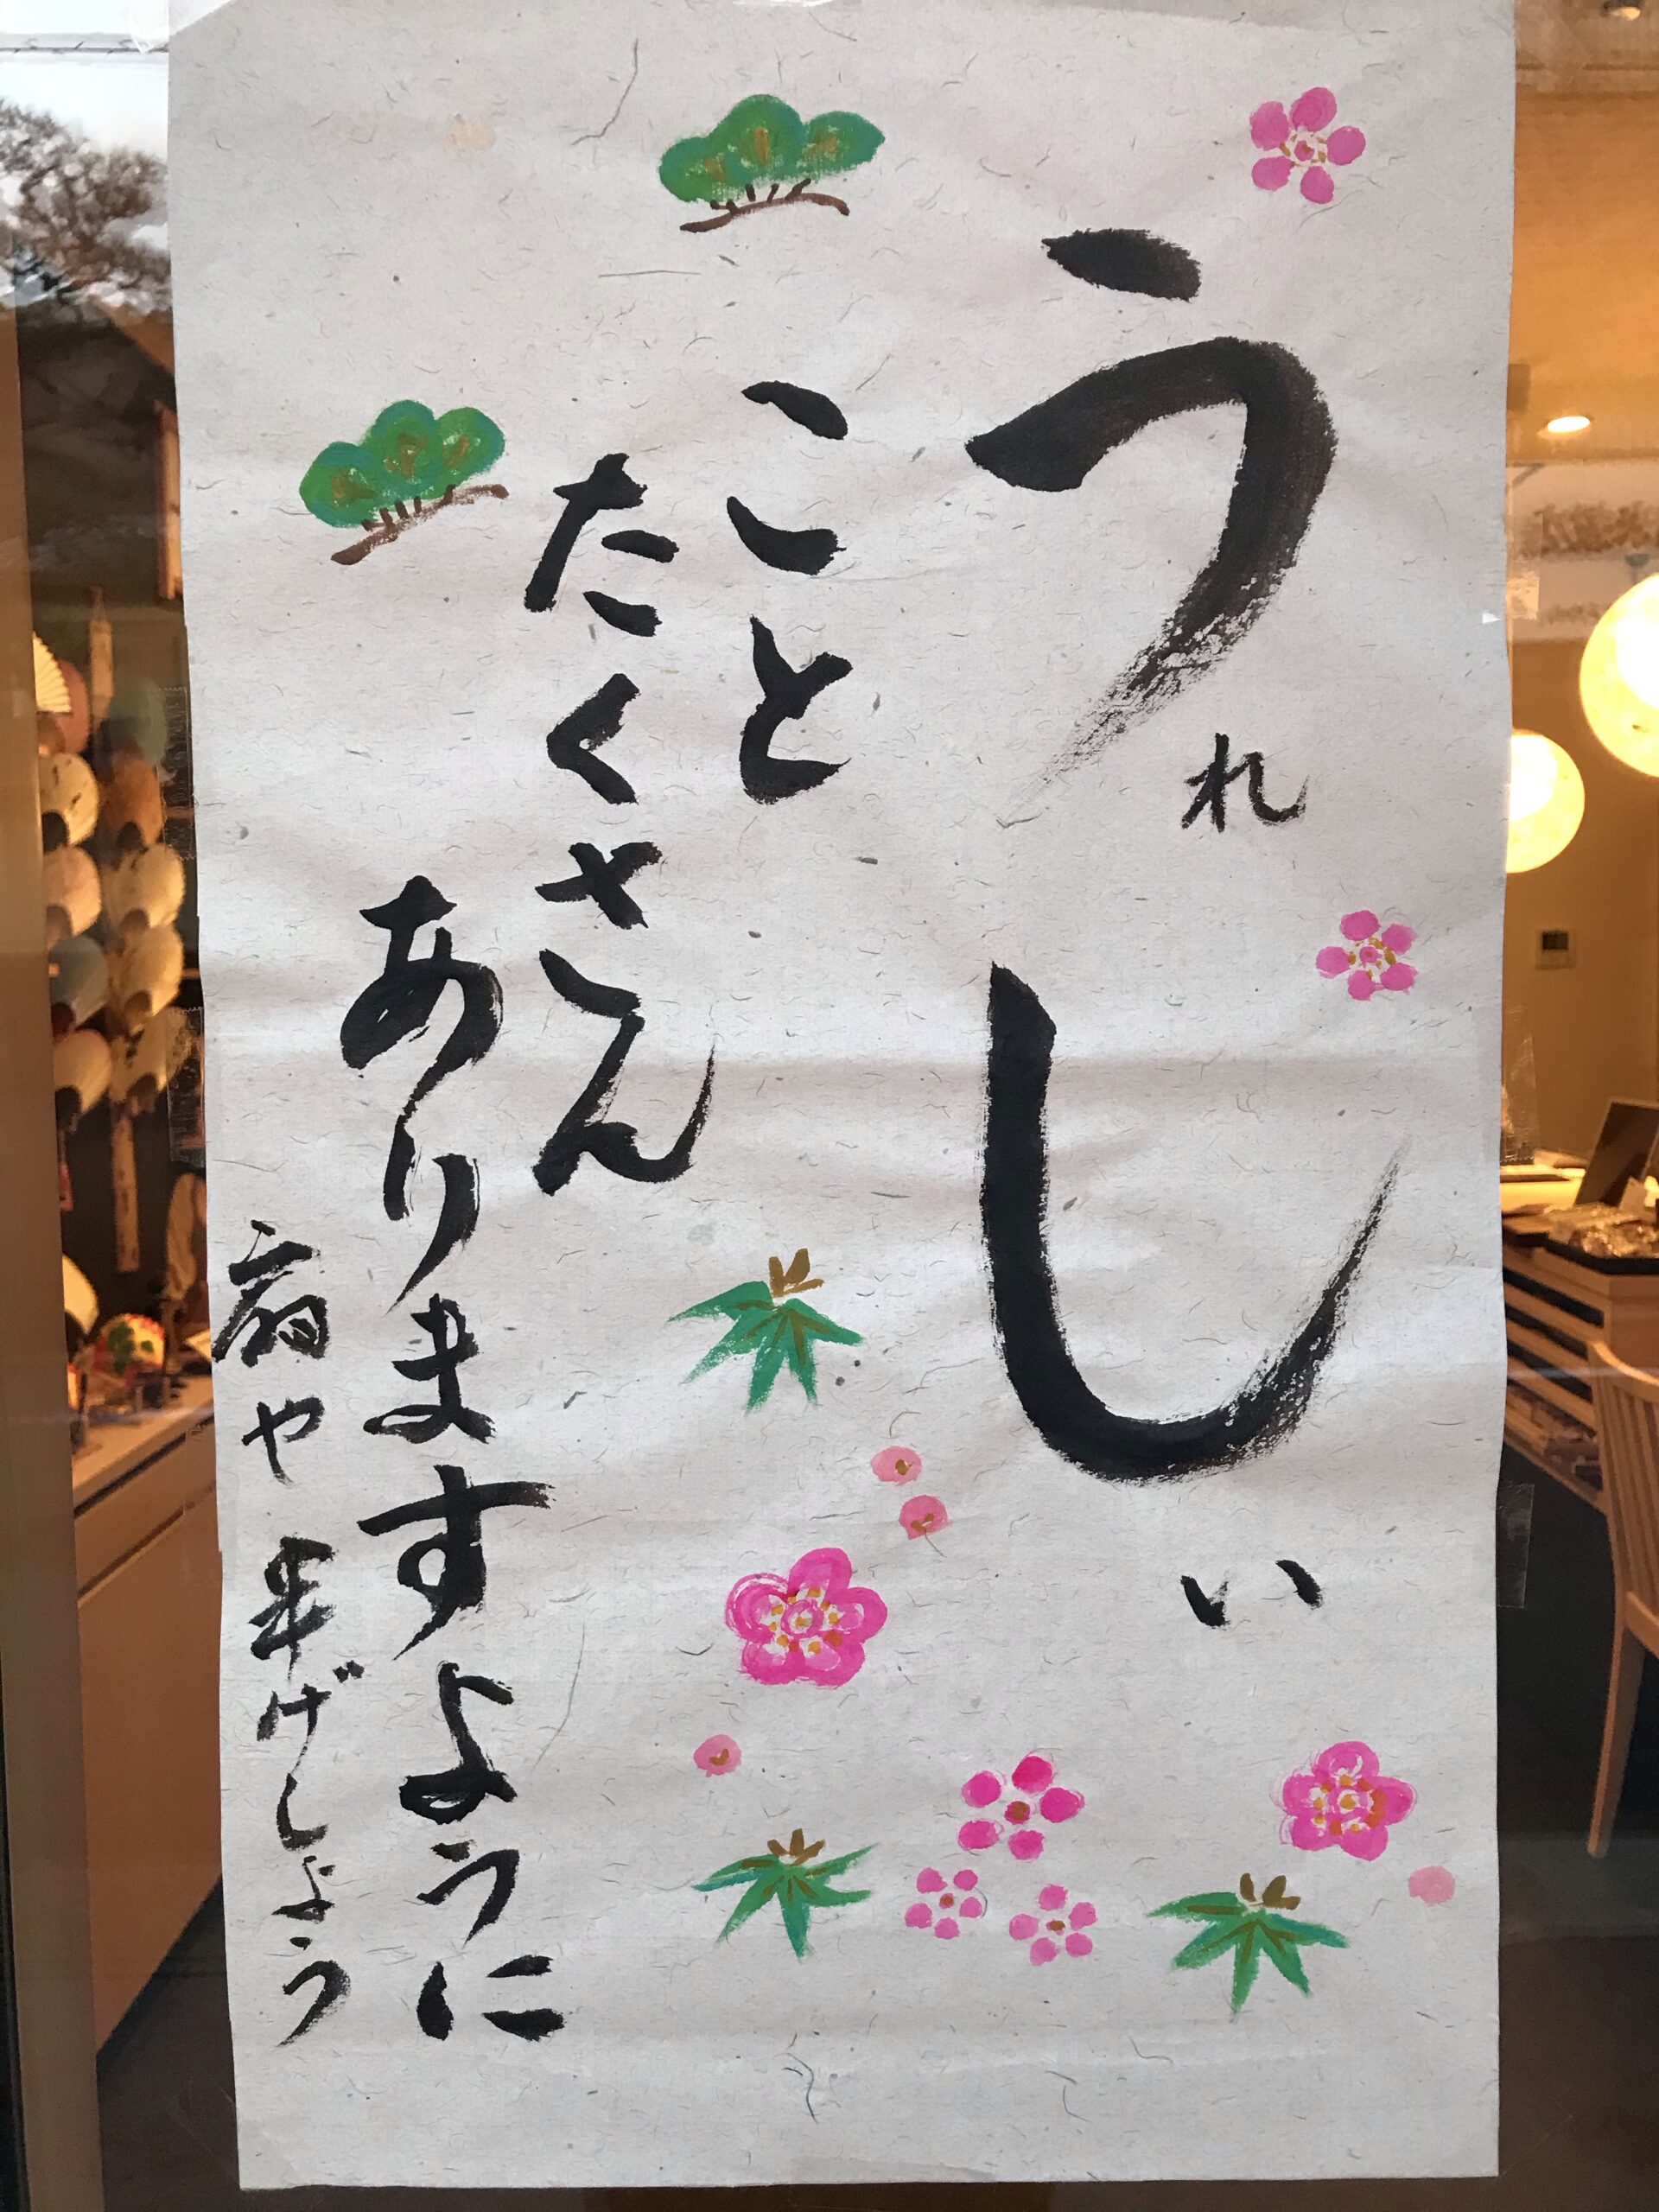 うれしい
こと
たくさん
ありますように
扇や 半げしょう